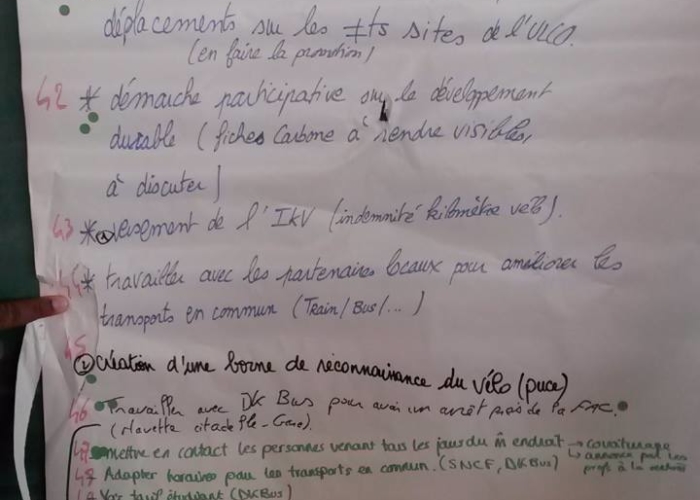 déplacements sur les ≠ts sites de l'ULCO.
(en faire la promotion)
42 * démarche participative sur le dévelopement
durable (fiches Carbone à rendre visibles,
à discuter)
43 * ② versement de l'IKV (indemnité kilomètre vélo).
44 * travailler avec les partenaires locaux pour améliorer les
transports en commun (Train/Bus/...)
45
① Création d'une borne de réconnaissance du vélo (puce)
46 • Travailler avec DK Bus pour avoir un arrêt près de la FAC.
(Navette citadelle - Gare).
47 mettre en contact les personnes venant tous les jours du m̂ endroit → covoiturage
↳ annonce par les
profs à la rentrée
48 Adapter horaires pour les transports en commun. (SNCF, DKBus)
Voir tarif étudiant (DKBus)